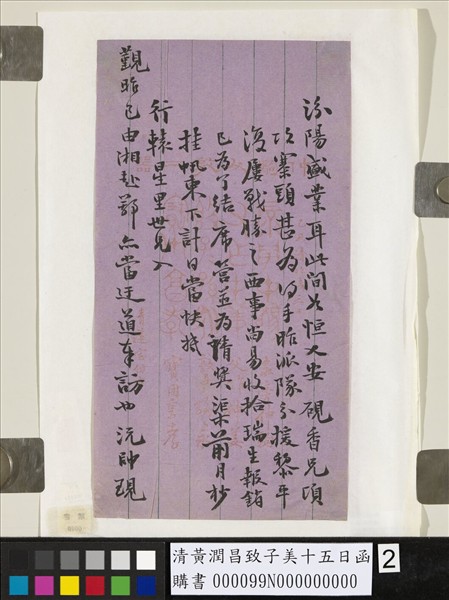 汾陽盛業耳此間父恒人安硯香兄頃
攻寨頭甚為得手昨派隊分援黎平
複屢戰勝之西事尚易收拾瑞生報銷
已為了結席營並為請獎渠前月杪
挂帆東下計日當快抵
行轅星里世兄入
覲昨已由湘赴鄂亦當迂道奉訪也沅帥現
清黃潤昌致子美十五日函
購書 000099N000000000
2